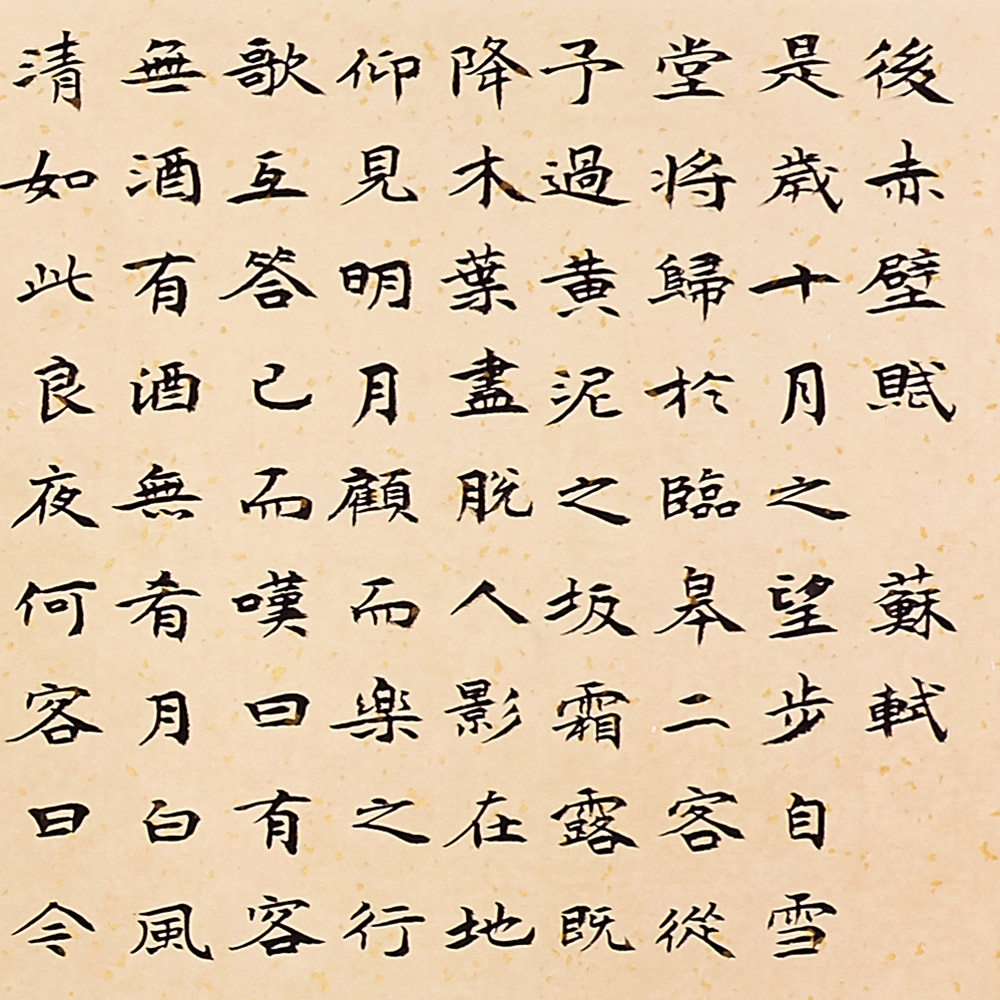 後赤壁賦 蘇軾
是歲十月之望步自雪
堂將歸於臨皋二客從
予過黃泥之坂霜露既
降木葉盡脫人影在地
仰見明月顧而樂之行
歌互答已而嘆曰有客
無酒有酒無肴月白風
清如此良夜何客曰今